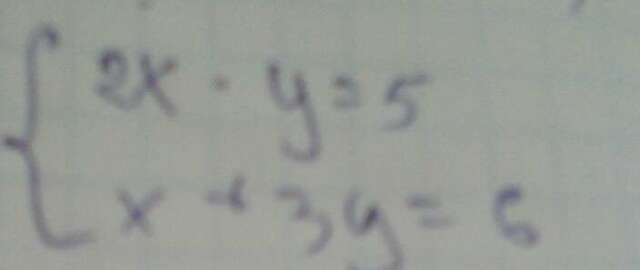 2x - y = 5
x + 3y = 6